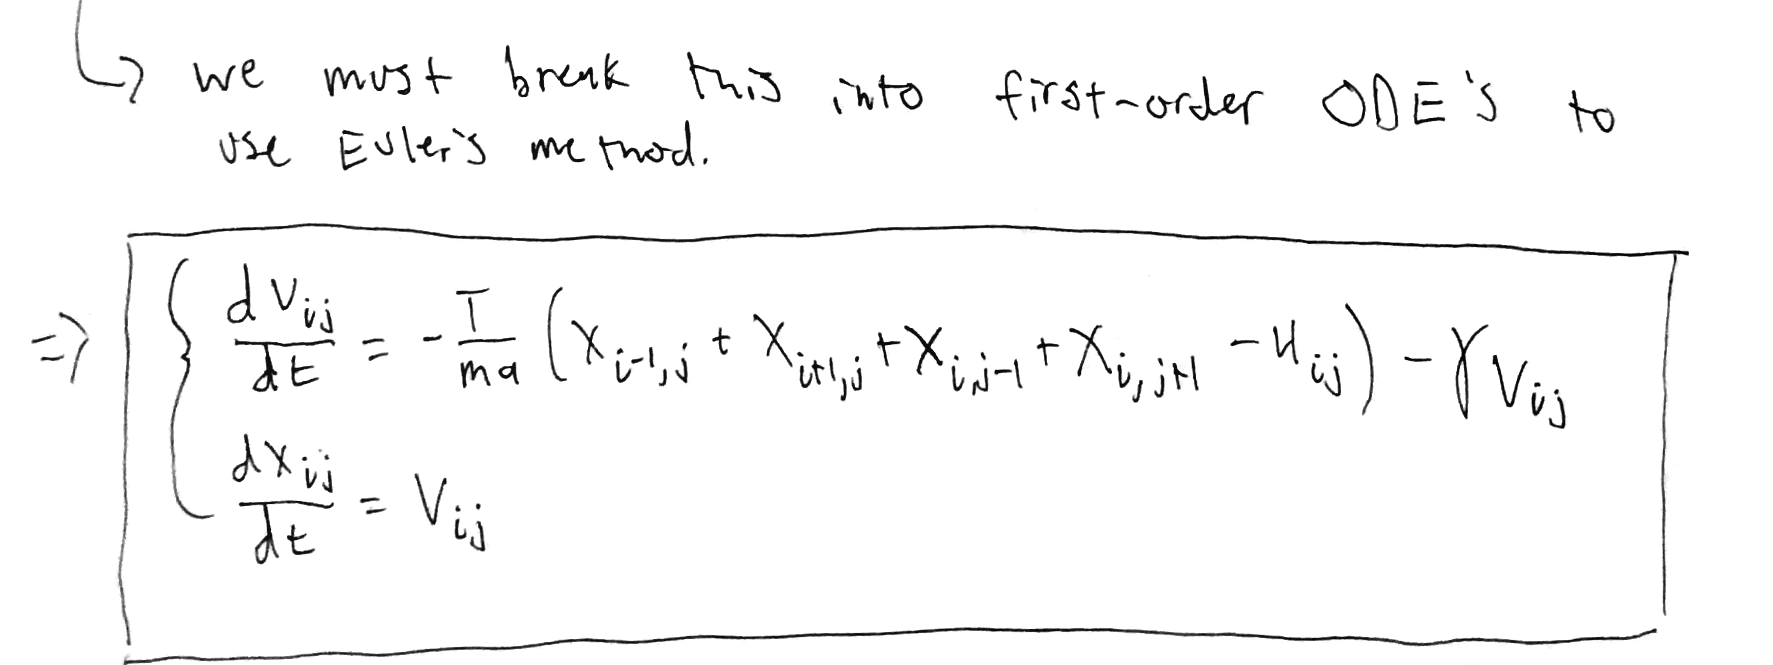 ↳ we must break this into first-order ODE's to
use Euler's method.
⇒ { dV_{ij}/dt = -T/ma (x_{i-1,j} + x_{i+1,j} + x_{i,j-1} + x_{i,j+1} - 4_{ij}) - γV_{ij}
dx_{ij}/dt = V_{ij}